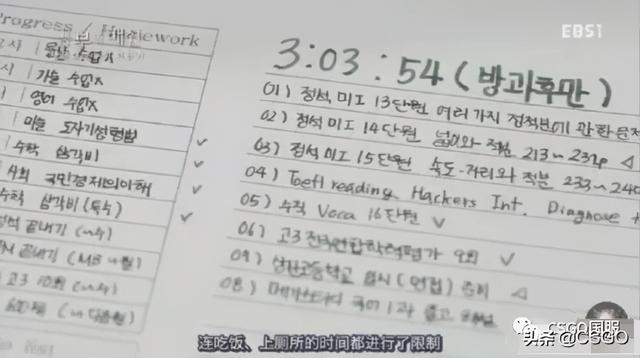 EBS1
Progress / Homework
물리 수업x
가술 수업x
영어 수업x
미술 도자기성형법
수학 삼각비
사회 국민경제의이해
수학 삼각비 (특수)
끝내기
끝내기
고3 10회
3:03:54 (방과후만)
01) 정석 미I 13단원 여러가지 정적분에 관한 문제
02) 정석 미I 14단원 넓이와 적분 213~232p
03) 정석 미I 15단원 속도·거리와 적분 233~240
04) Toefl reading Hackers Int. Diagnose
05) 수직 Voca 16단원
06) 고3 전국연합학력평가 9회
09) 상산고등학교 입시 (면접) 준비
08) 메가스터디 국어 1과
连吃饭、上厕所的时间都进行了限制
CSGO国服
头条 @CSGO